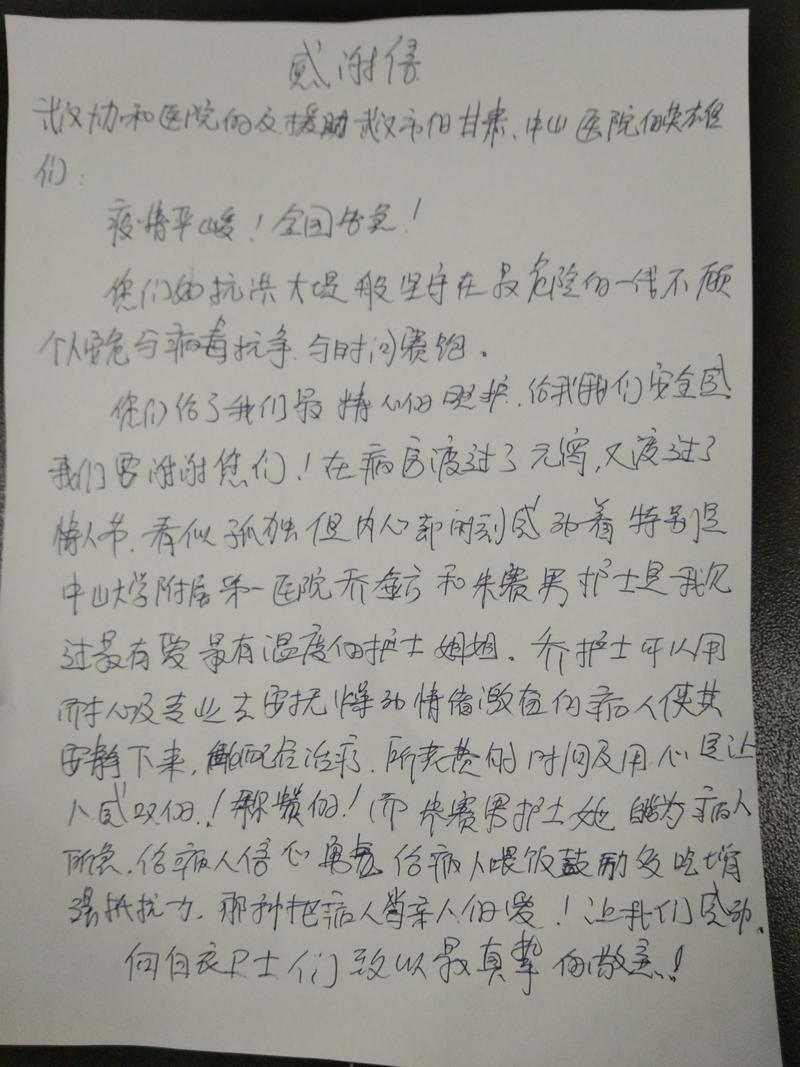 感谢信
武汉协和医院的及援助武汉市的甘肃、中山医院的英雄
们：
疫情严峻！全国告急！
您们如抗洪大堤般坚守在最危险的一线不顾
个人安危与病毒抗争与时间赛跑。
您们给了我们最精心的照护，给我我们安全感
我们要谢谢您们！在病房渡过了元宵，又度过了
情人节，看似孤独但内心却时刻感动着特别是
中山大学附属第一医院乔金方和朱赛男护士是我见
过最有爱最有温度的护士姐姐。乔护士可以用
耐心及专业去安抚燥动情绪激症的病人使其
安静下来，配合治疗，所花费的时间及用心是让
人感叹的！敬赞的！而朱赛男护士她皆为病人
所急，给病人信心勇气给病人喂饭鼓励多吃增
强抵抗力，那种把病人当亲人的爱！让我们感动。
向白衣卫士们致以最真挚的敬意！